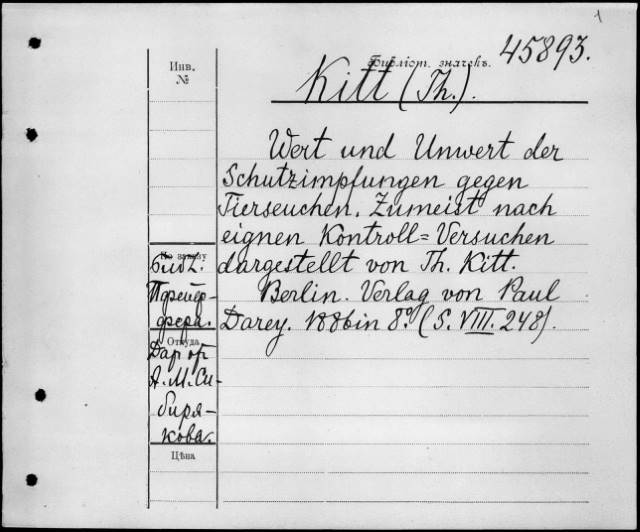 1
Инв.
№
Библіот. значекъ.
45893.
Kitt (Th.).
Wert und Unwert der
Schutzimpfungen gegen
Tierseuchen. Zumeist nach
eignen Kontroll=Versuchen
dargestellt von Th. Kitt.
Berlin. Verlag von Paul
Darey. 1886 in 8º. (S. VIII. 248).
По заказу
Библ.
Пфейф-
фера.
Откуда
Дар от
А. М. Си-
биря-
кова.
Цѣна